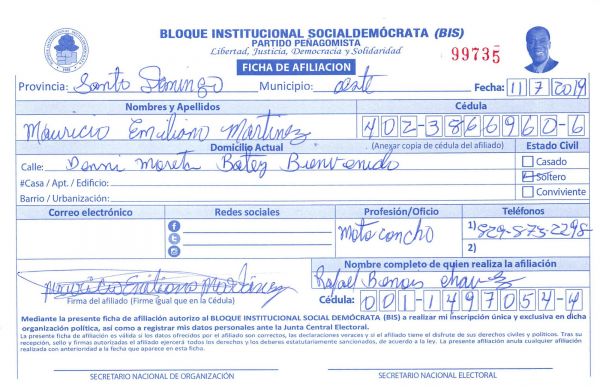 BLOQUE INSTITUCIONAL SOCIALDEMÓCRATA (BIS)
PARTIDO PEÑAGOMISTA
Libertad, Justicia, Democracia y Solidaridad
99735
FICHA DE AFILIACION
Provincia: Santo Domingo Municipio: oeste Fecha: 11/7/2019
Nombres y Apellidos Cédula
Mauricio Emiliano Martinez 402-3866960-6
Domicilio Actual (Anexar copia de cédula del afiliado) Estado Civil
Calle: Batey Bienvenido Casado
#Casa / Apt. / Edificio: Soltero
Barrio / Urbanización: Conviviente
Correo electrónico Redes sociales Profesión/Oficio Teléfonos
Moto concho 1) 829-873-2298
2)
Nombre completo de quien realiza la afiliación
Mauricio Emiliano Martinez Rafael
Firma del afiliado (Firme igual que en la Cédula) Cédula: 001-1497054-4
Mediante la presente ficha de afiliación autorizo al BLOQUE INSTITUCIONAL SOCIAL DEMÓCRATA (BIS) a realizar mi inscripción única y exclusiva en dicha
organización política, así como a registrar mis datos personales ante la Junta Central Electoral.
La presente ficha de afiliación es válida si los datos ofrecidos por el afiliado son correctos, las declaraciones veraces y si el afiliado tiene el disfrute de sus derechos civiles y políticos. Tras su
recepción, sello y firmas autorizadas el afiliado ejercerá todos los derechos y los deberes estatutariamente sancionados, de acuerdo a la ley. La presente afiliación anula cualquier afiliación
realizada con anterioridad a la fecha que aparece en esta ficha.
SECRETARIO NACIONAL DE ORGANIZACIÓN SECRETARIO NACIONAL ELECTORAL